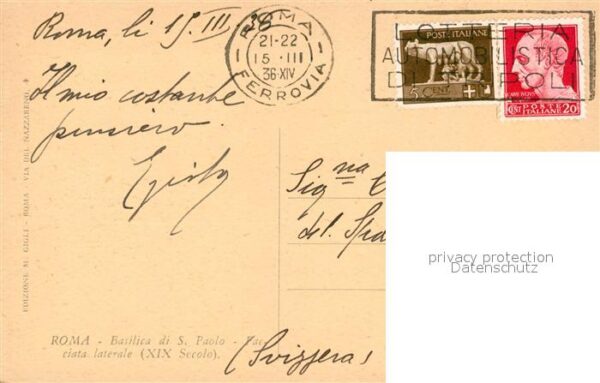 Roma, li 15. III 36
ROMA
21-22
15 - III
36·XIV
FERROVIA
LOTTERIA
AUTOMOBILISTICA
DI TRIPOLI
POSTE ITALIANE
5 CENT
POSTE
ITALIANE
CENT 20
Il mio costante
pensiero.
Sig.na
del. Spa
(Svizzera)
privacy protection
Datenschutz
EDIZIONE M. GIGLI - ROMA - VIA DEL NAZZARENO
ROMA - Basilica di S. Paolo - Fac-
ciata laterale (XIX Secolo).